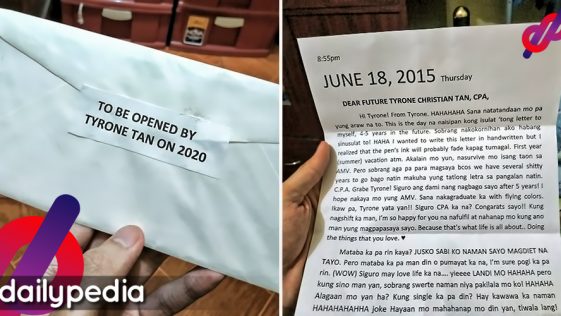 TO BE OPENED BY
TYRONE TAN ON 2020
dailypedia
8:55pm
JUNE 18, 2015 Thursday
DEAR FUTURE TYRONE CHRISTIAN TAN, CPA,
Hi Tyrone! From Tyrone. HAHAHAHA Sana natatandaan mo pa
yung araw na to. This is the day na naisipan kong isulat 'tong letter to
myself, 4-5 years in the future. Sobrang nakokornihan ako habang
sinusulat to! HAHA I wanted to write this letter in handwritten but I
realized that the pen's ink will probably fade kapag tumagal. First year
(summer) vacation atm. Akalain mo yun, nasurvive mo isang taon sa
AMV. Pero sobrang aga pa para magsaya bcos we have several shitty
years to go bago natin makuha yung tatlong letra sa pangalan natin.
C.P.A. Grabe Tyrone! Siguro ang dami nang nagbago sayo after 5 years! I
hope nakaya mo yung AMV. Sana nakagraduate ka with flying colors.
Ikaw pa, Tyrone yata yan!! Siguro CPA ka na? Congarats sayo!! Kung
nagshift ka man, I'm so happy for you na nafulfil at nahanap mo kung ano
man yung magpapasaya sayo. Because that's what life is all about.. Doing
the things that you love. ♥
Mataba ka pa rin kaya? JUSKO SABI KO NAMAN SAYO MAGDIET NA
TAYO. Pero mataba ka pa man din o pumayat ka na, I'm sure pogi ka pa
rin. (WOW) Siguro may love life ka na.... yieeee LANDI MO HAHAHA pero
kung sino man yan, sobrang swerte naman niya pakilala mo ko! HAHAHA
Alagaan mo yan ha? Kung single ka pa din? Hay kawawa ka naman
HAHAHAHAHHA joke Hayaan mo mahahanap mo din yan, tiwala lang!